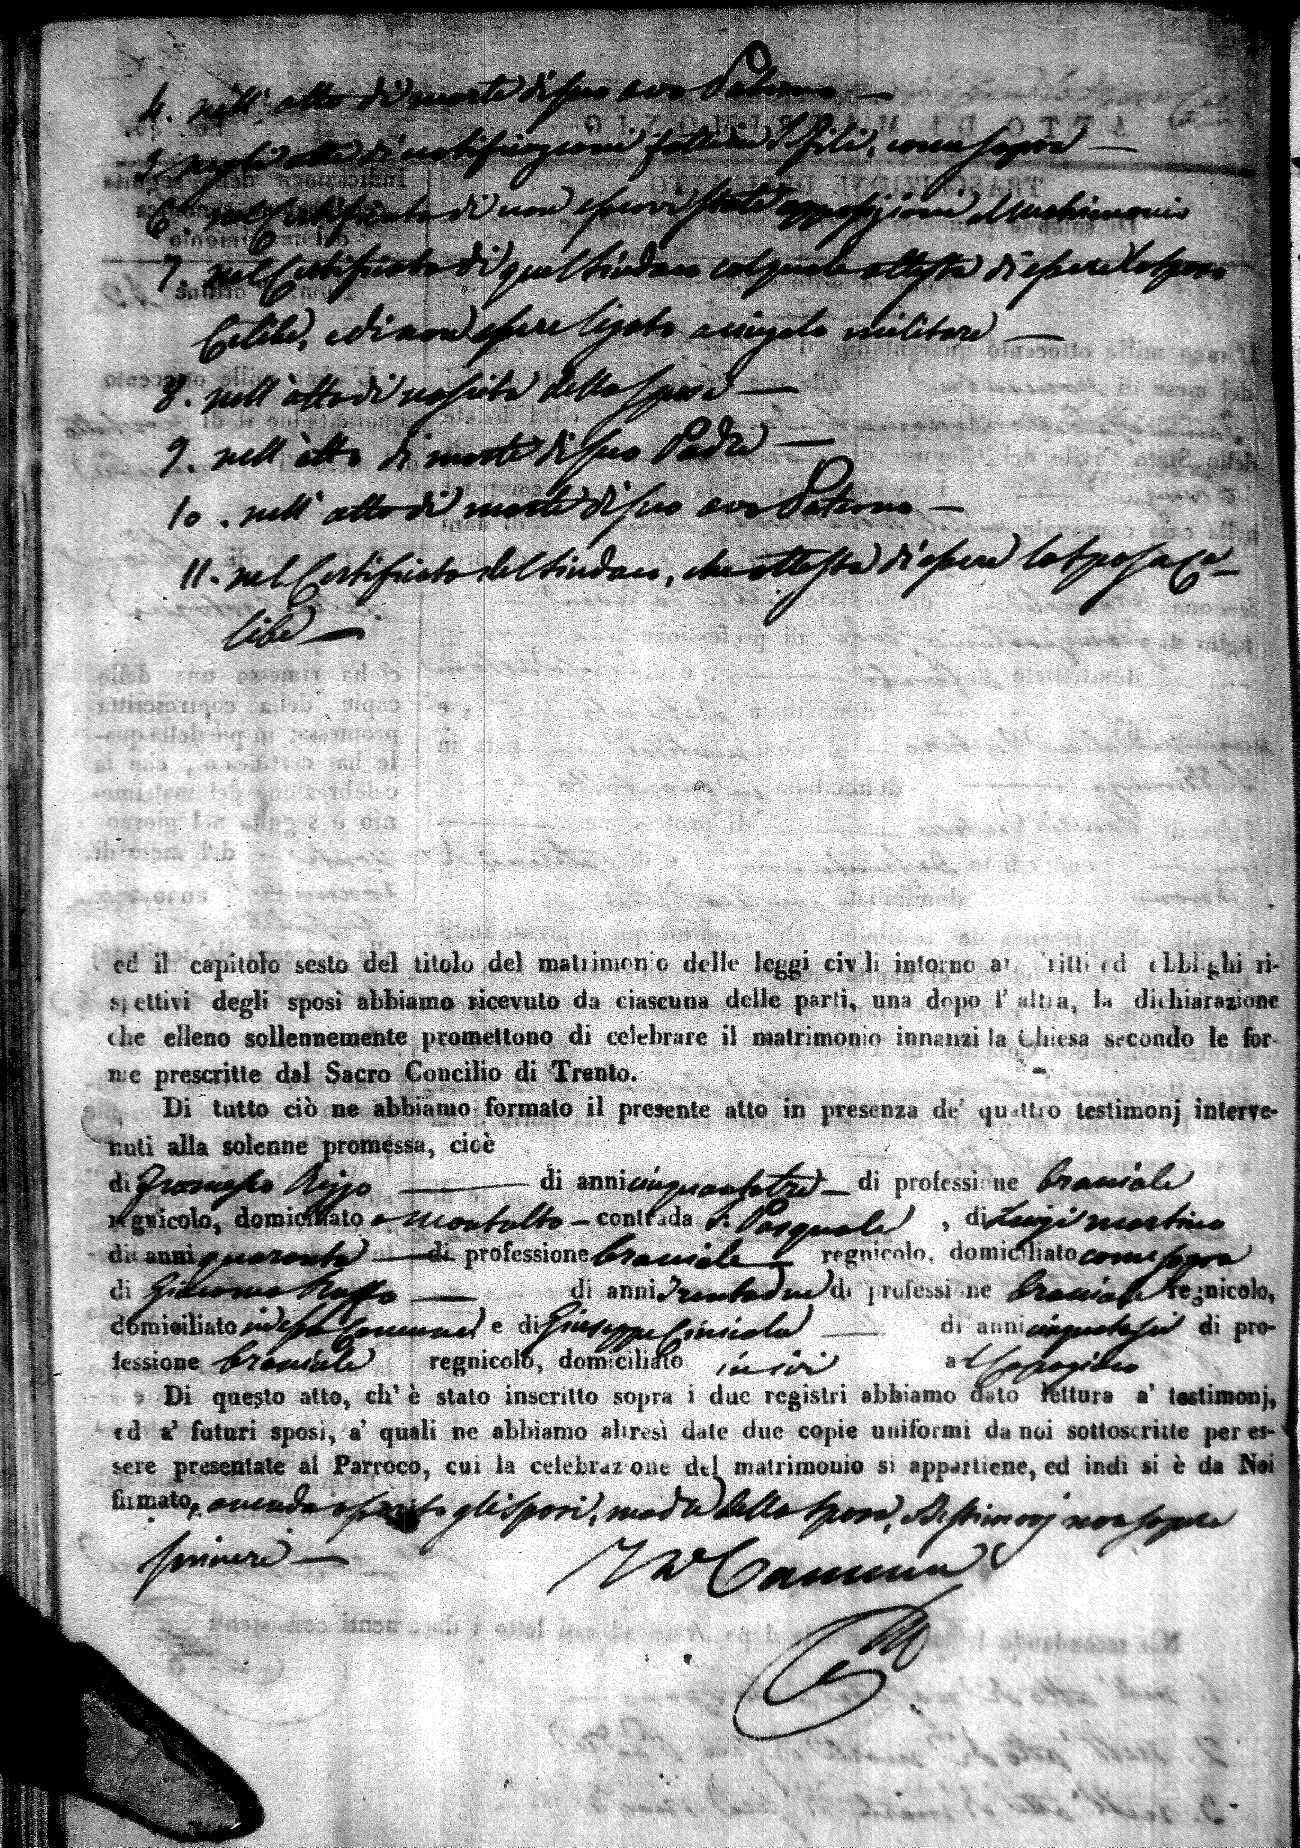 4. nell' atto di morte di suo avo Paterno —
5. negli atti di notificazioni fatte in S. Sisti, come sopra —
6. nel Certificato di non esservi state opposizioni al matrimonio
7. nel Certificato di quel Sindaco col quale attesta di essere lo sposo
Celibe, e di non essere ligato a cingolo militare —
8. nell' atto di nascita della sposa —
9. nell' atto di morte di suo Padre —
10. nell' atto di morte di suo avo Paterno —
11. nel Certificato del Sindaco, che attesta di essere la sposa Ce-
libe —
ed il capitolo sesto del titolo del matrimonio delle leggi civili intorno a' ritti ed obblighi ri-
spettivi degli sposi abbiamo ricevuto da ciascuna delle parti, una dopo l' altra, la dichiarazione
che elleno sollennemente promettono di celebrare il matrimonio innanzi la Chiesa secondo le for-
me prescritte dal Sacro Concilio di Trento.
Di tutto ciò ne abbiamo formato il presente atto in presenza de' quattro testimonj interve-
nuti alla solenne promessa, cioè
di Francesco Rizzo — di anni cinquantatre — di professione bracciale
regnicolo, domiciliato a Montalto — contrada S. Pasquale, di Luigi Martino
di anni quaranta — di professione bracciale — regnicolo, domiciliato come sopra
di Giacomo Ruffo — di anni trentadue di professione bracciale regnicolo,
domiciliato in d. Comune e di Giuseppe — di anni cinquantasei di pro-
fessione bracciale regnicolo, domiciliato in ivi
Di questo atto, ch' è stato inscritto sopra i due registri abbiamo dato lettura a' testimonj,
ed a' futuri sposi, a' quali ne abbiamo altresì date due copie uniformi da noi sottoscritte per es-
sere presentate al Parroco, cui la celebrazione del matrimonio si appartiene, ed indi si è da Noi
firmato, avendo asserito gli sposi, madre della sposa, e testimonj non sapere
scrivere —